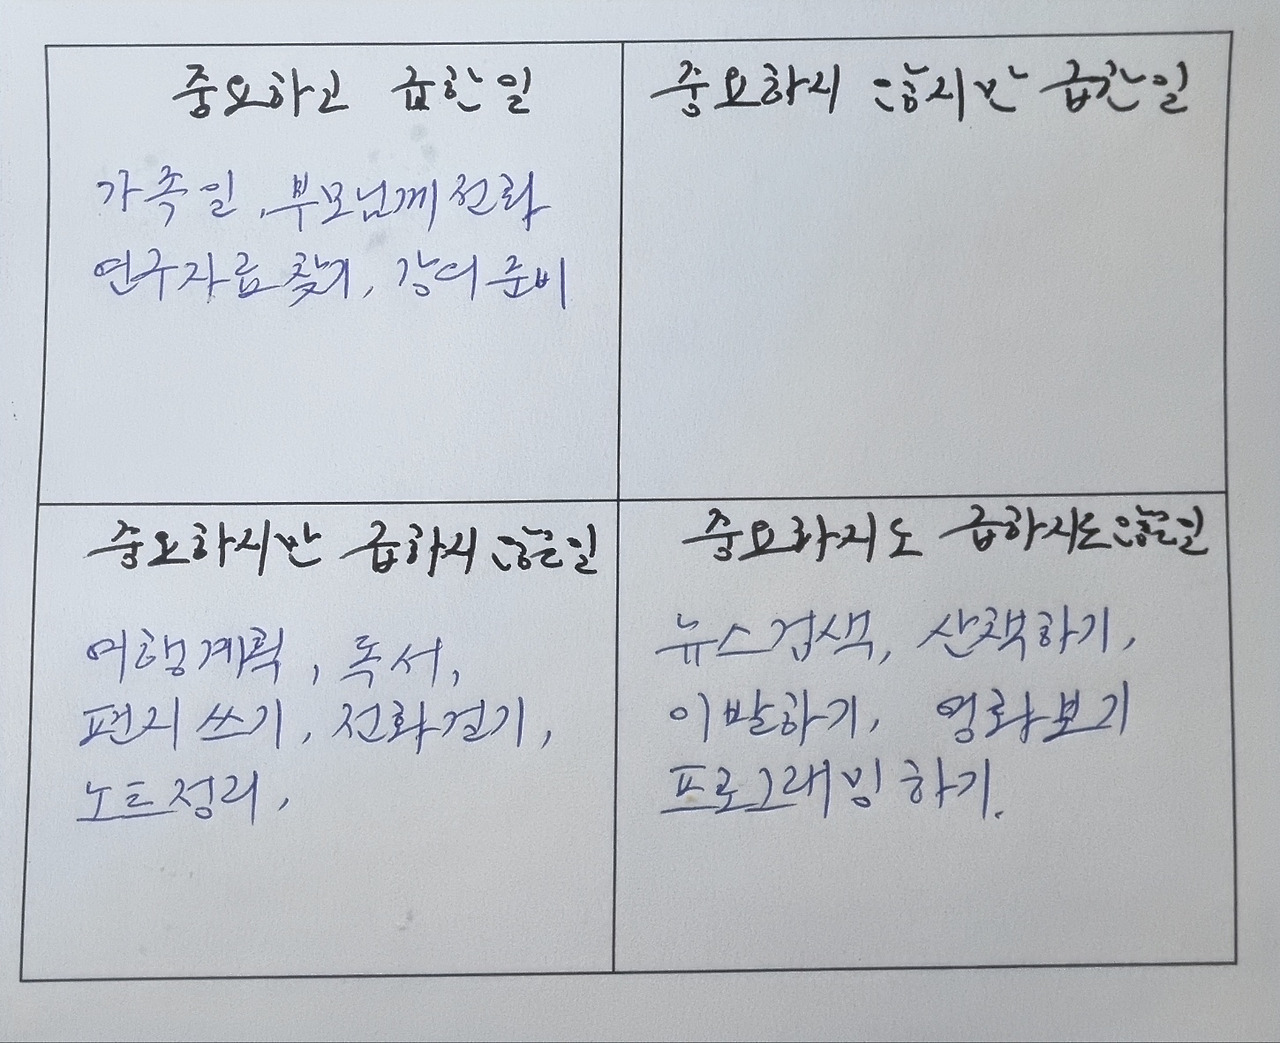 중요하고 급한 일
가족일, 부모님께 전화
연구자료 찾기, 강의 준비
중요하지 않지만 급한 일
중요하지만 급하지 않은 일
여행계획, 독서,
편지 쓰기, 전화걸기,
노트정리,
중요하지도 급하지도 않은 일
뉴스검색, 산책하기,
이발하기, 영화보기
프로그래밍 하기.